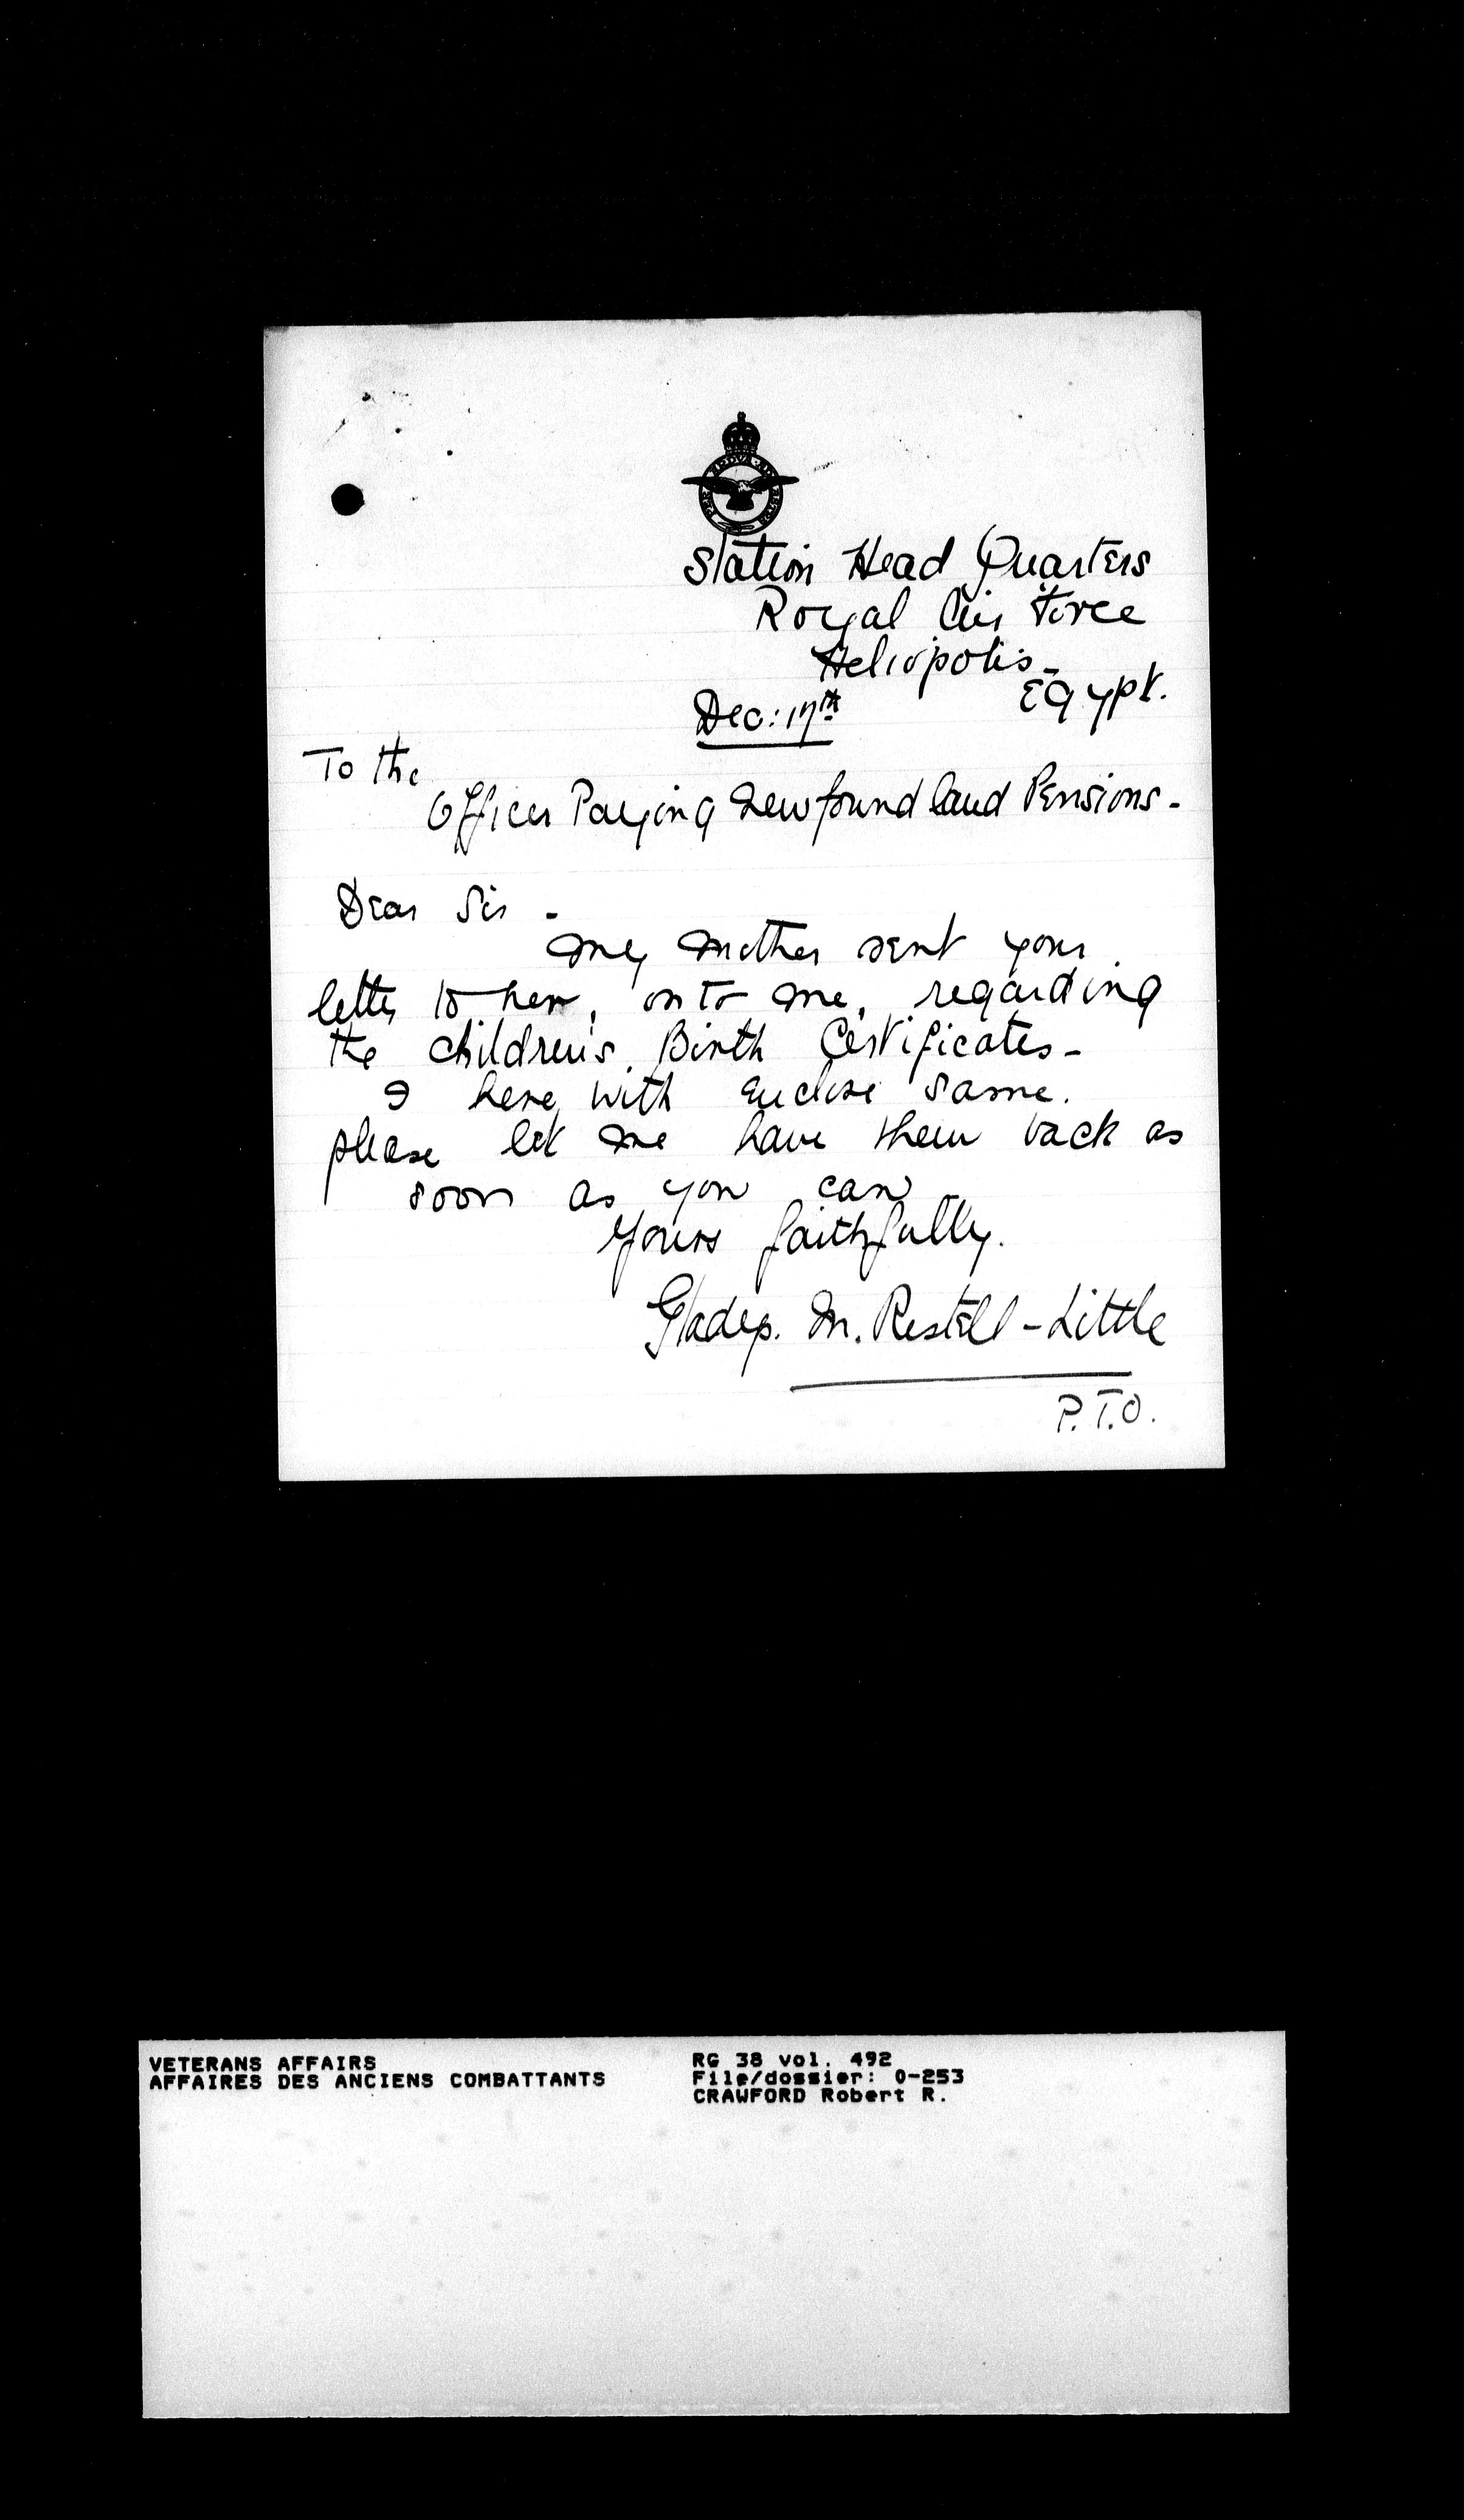 PER ARDUA AD ASTRA
Station Head Quarters
Royal Air Force
Heliopolis -
Egypt.
Dec: 17th
To the
Officer Paying Newfoundland Pensions -
Dear Sir -
My Mother sent your
letter to her, on to me, regarding
the children's Birth Certificates -
I here with enclose same.
please let me have them back as
soon as you can
Yours faithfully.
Gladys. M. Restell - Little
P.T.O.
VETERANS AFFAIRS
AFFAIRES DES ANCIENS COMBATTANTS
RG 38 vol. 492
File/dossier: 0-253
CRAWFORD Robert R.